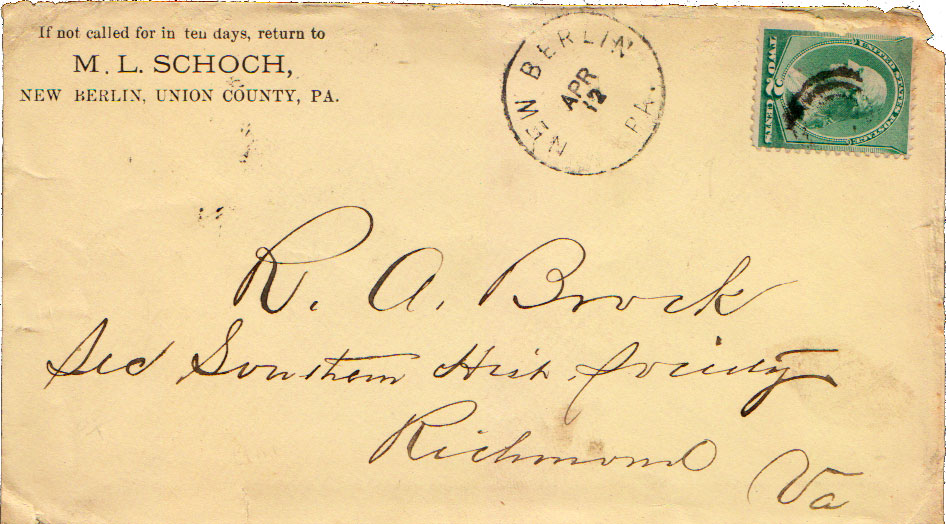 If not called for in ten days, return to
M. L. SCHOCH,
NEW BERLIN, UNION COUNTY, PA.
NEW BERLIN PA.
APR
12
UNITED STATES POSTAGE
TWO 2 CENTS
R. A. Brock
Sec Southern Hist. Society
Richmond
Va